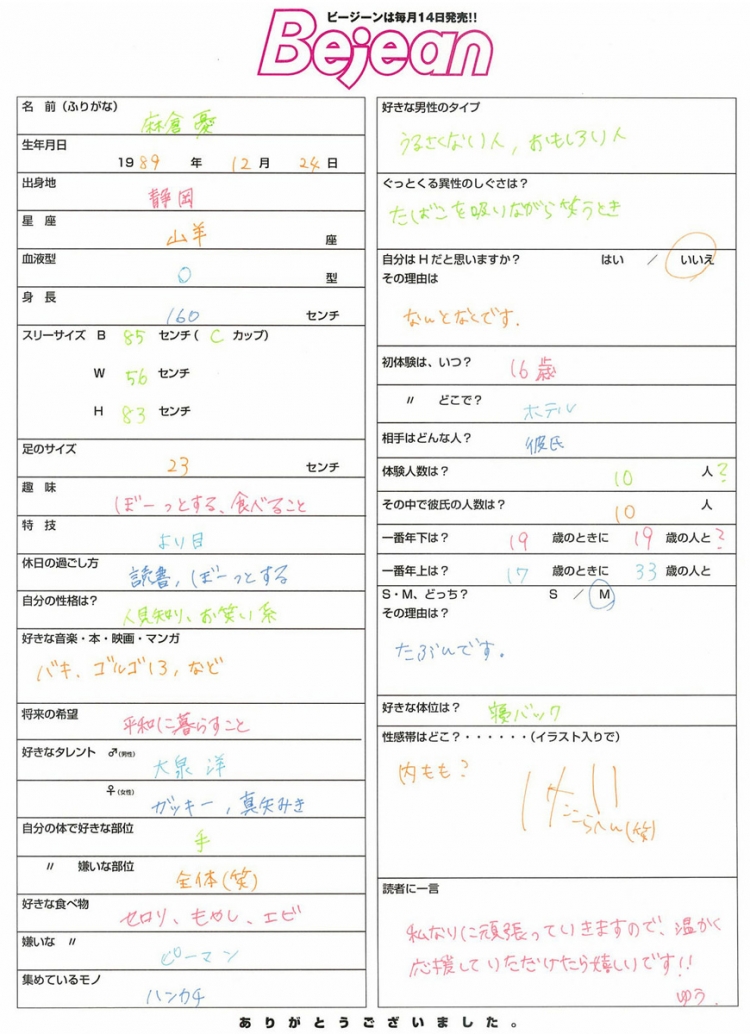 ビージーンは毎月14日発売!!
Bejean
名　前（ふりがな）
麻倉 憂
生年月日
1989 年 12月 24日
出身地
静岡
星　座
山羊 座
血液型
O 型
身　長
160 センチ
スリーサイズ B 85 センチ( C カップ)
W 56 センチ
H 83 センチ
足のサイズ
23 センチ
趣　味
ぼーっとする、食べること
特　技
より目
休日の過ごし方
読書，ぼーっとする
自分の性格は？
人見知り、お笑い系
好きな音楽・本・映画・マンガ
バキ、ゴルゴ13，など
将来の希望
平和に暮らすこと
好きなタレント ♂(男性)
大泉 洋
♀(女性)
ガッキー，真矢みき
自分の体で好きな部位
手
〃 嫌いな部位
全体(笑)
好きな食べ物
セロリ、もやし、エビ
嫌いな 〃
ピーマン
集めているモノ
ハンカチ
好きな男性のタイプ
うるさくない人，おもしろい人
ぐっとくる異性のしぐさは？
たばこを吸いながら笑うとき
自分はHだと思いますか？ はい ／ いいえ
その理由は
なんとなくです.
初体験は、いつ？ 16歳
〃 どこで？ ホテル
相手はどんな人？ 彼氏
体験人数は？ 10 人？
その中で彼氏の人数は？ 10 人
一番年下は？ 19 歳のときに 19 歳の人と？
一番年上は？ 17 歳のときに 33 歳の人と
S・M、どっち？ S ／ M
その理由は？
たぶんです。
好きな体位は？ 寝バック
性感帯はどこ？・・・・・・(イラスト入りで)
内もも？
ここらへん(笑)
読者に一言
私なりに頑張っていきますので、温かく
応援していただけたら嬉しいです!!
ゆう.
ありがとうございました。